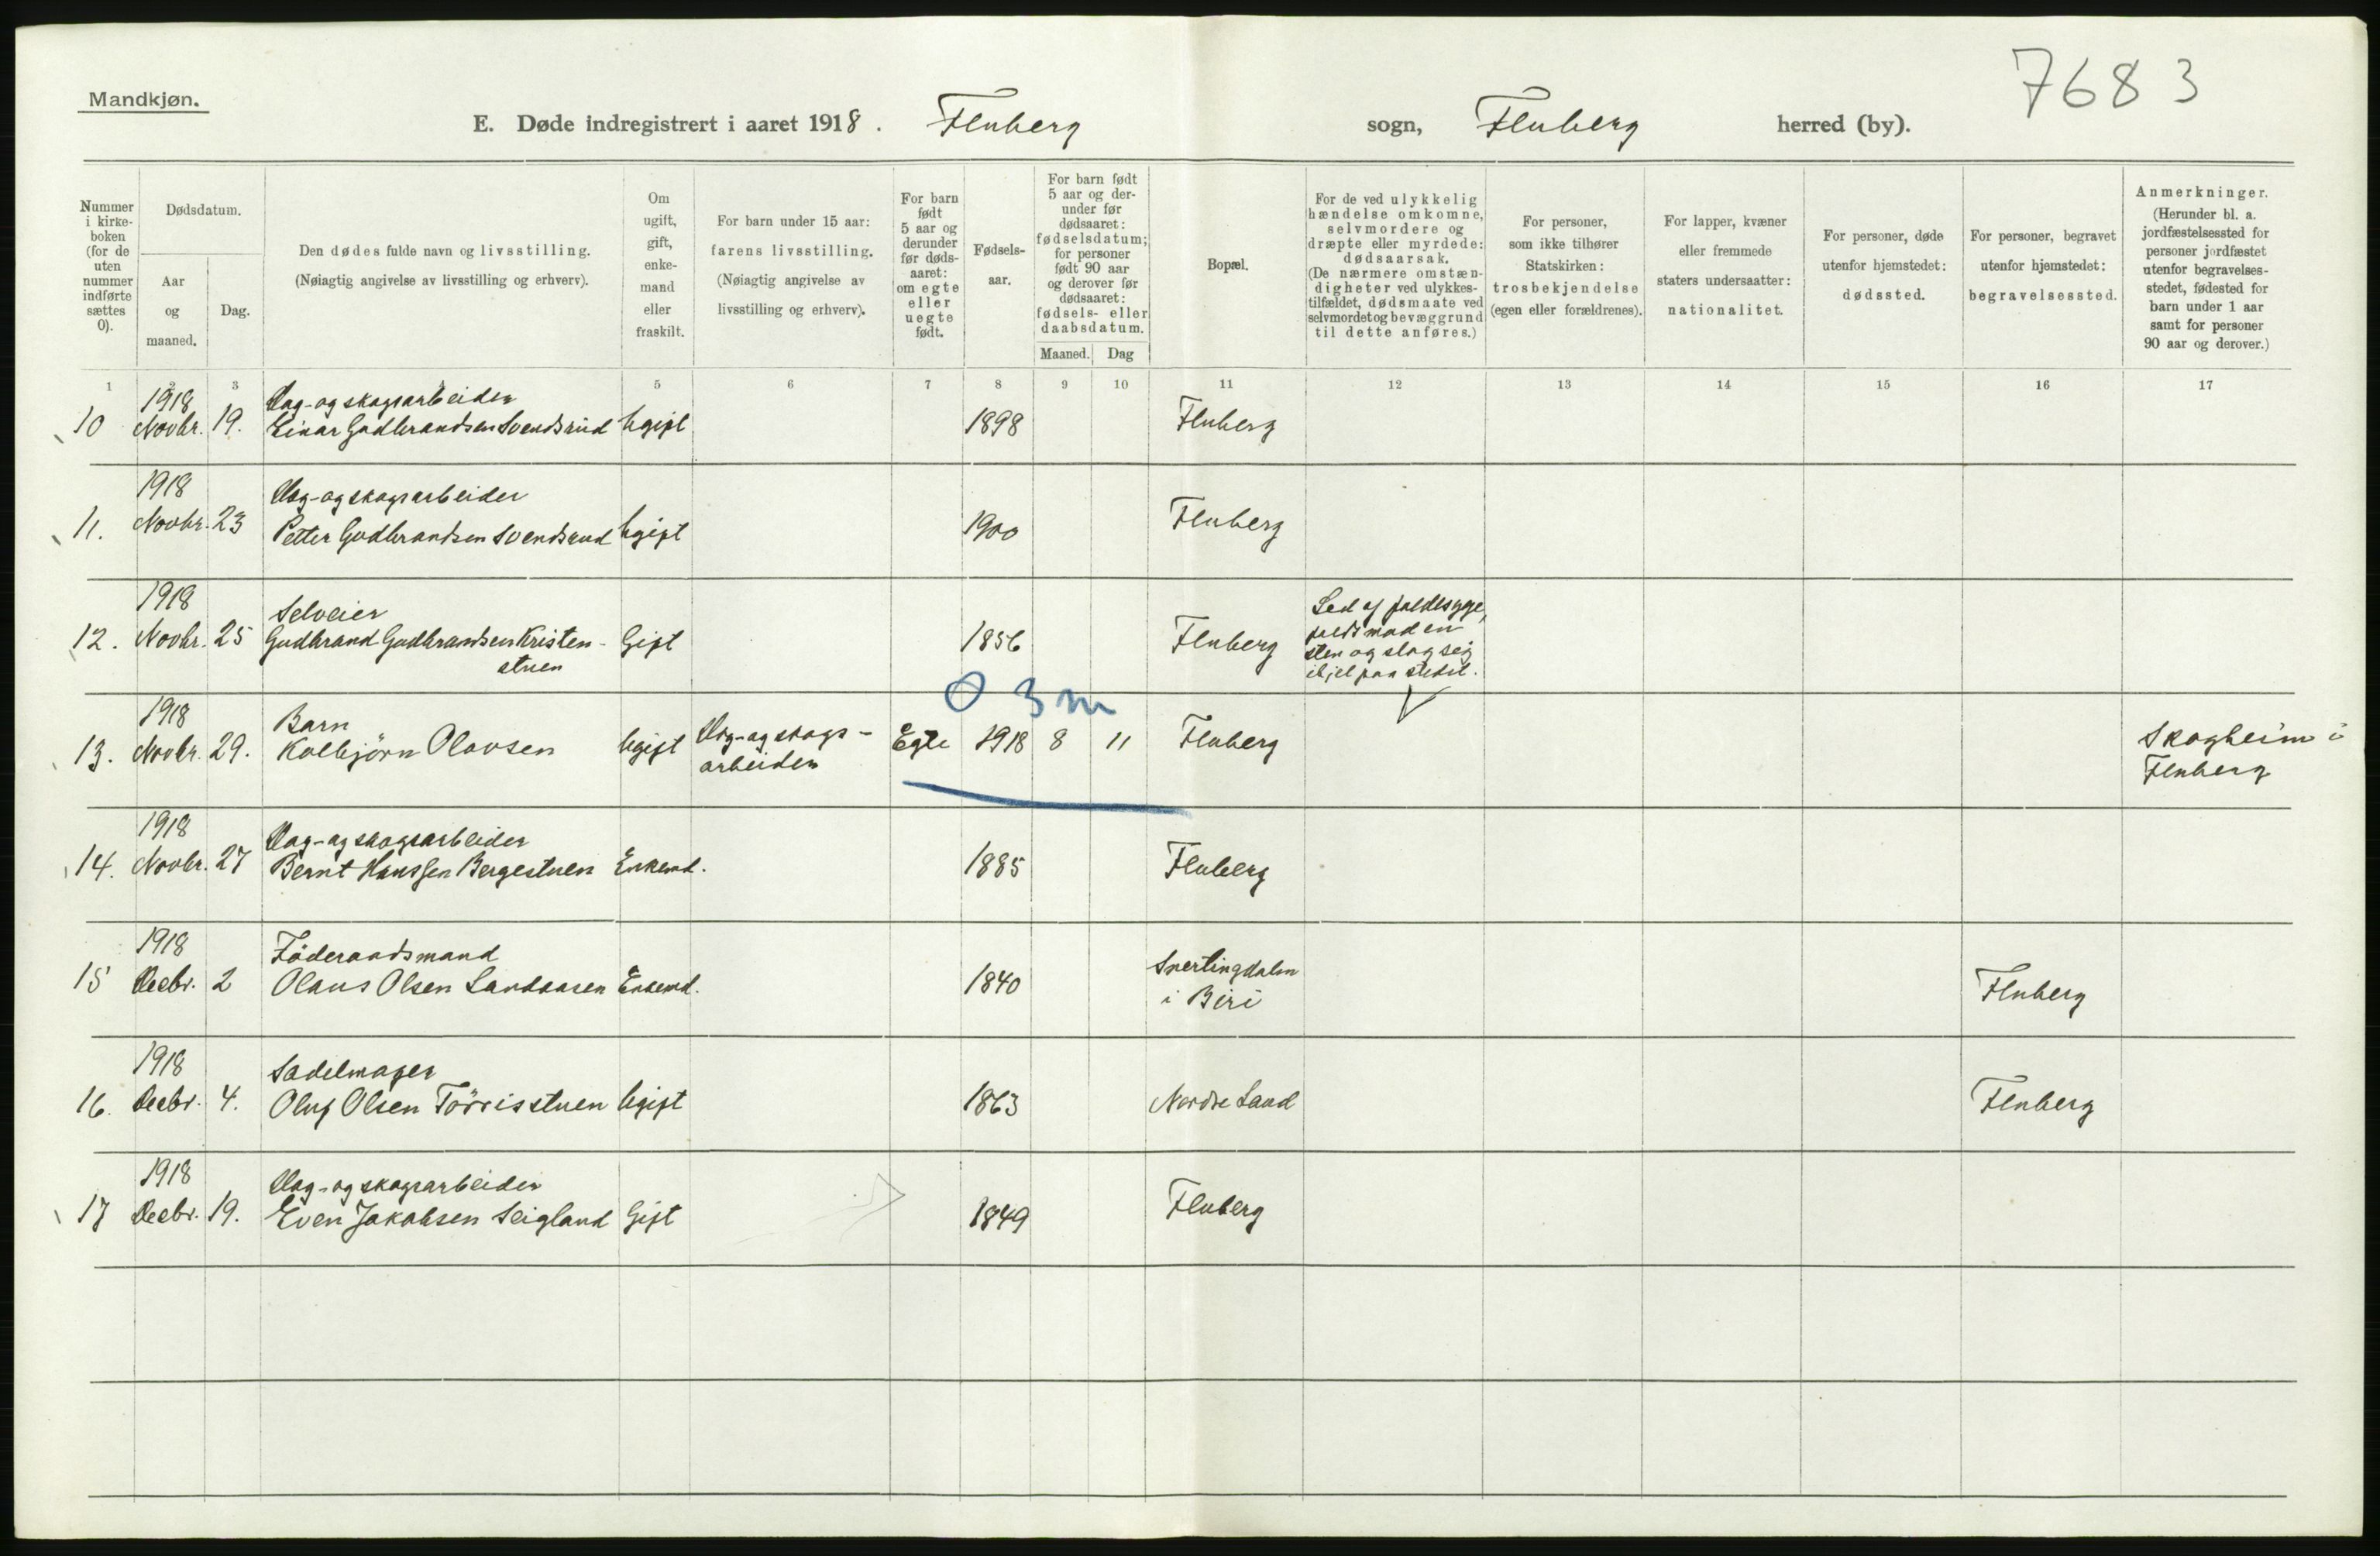 Mandkjøn.
7683
E. Døde indregistrert i aaret 1918. Fluberg sogn, Fluberg herred (by).
Nummer i kirke-boken (for de uten nummer indførte sættes 0).
Dødsdatum.
Aar og maaned.
Dag.
Den dødes fulde navn og livsstilling.
(Nøiagtig angivelse av livsstilling og erhverv).
Om ugift, gift, enke-mand eller fraskilt.
For barn under 15 aar: farens livsstilling.
(Nøiagtig angivelse av livsstilling og erhverv).
For barn født 5 aar og derunder før døds-aaret: om egte eller uegte født.
Fødsels-aar.
For barn født 5 aar og der-under før dødsaaret: fødselsdatum; for personer født 90 aar og derover før dødsaaret: fødsels- eller daabsdatum.
Maaned. Dag
Bopæl.
For de ved ulykkelig hændelse omkomne, selvmordere og dræpte eller myrdede: dødsaarsak.
(De nærmere omstæn-digheter ved ulykkes-tilfældet, dødsmaate ved selvmordet og bevæggrund til dette anføres.)
For personer, som ikke tilhører Statskirken: trosbekjendelse (egen eller forældrenes).
For lapper, kvæner eller fremmede staters undersaatter: nationalitet.
For personer, døde utenfor hjemstedet: dødssted.
For personer, begravet utenfor hjemstedet: begravelsessted.
Anmerkninger.
(Herunder bl. a. jordfæstelsessted for personer jordfæstet utenfor begravelses-stedet, fødested for barn under 1 aar samt for personer 90 aar og derover.)
1 2 3 5 6 7 8 9 10 11 12 13 14 15 16 17
1918 Dag-og skogsarbeider
10 Novbr. 19. Einar Gudbrandsen Svendsrud Ugift 1898 Fluberg
1918 Dag-og skogsarbeider
11. Novbr. 23 Petter Gudbrandsen Svendsrud Ugift 1900 Fluberg
1918 Selveier
12. Novbr. 25 Gudbrand Gudbrandsen Kristen-
stuen Gift 1856 Fluberg
Led af faldesyge,
faldt mod en
sten og slog sig
ihjel paa stedet.
0 3 m
1918 Barn
13. Novbr. 29. Kolbjörn Olavsen Ugift Dag-og skogs-
arbeider Egte 1918 8 11 Fluberg Skogheim i
Fluberg
1918 Dag-og skogsarbeider
14. Novbr. 27 Bernt Hanssen Bergestuen Enkemd. 1885 Fluberg
1918 Föderaadsmand
15 Decbr. 2 Olaus Olsen Landaasen Enkemd. 1840 Snertingdalen
i Biri Fluberg
1918 Sadelmager
16. Decbr. 4. Oluf Olsen Törrisstuen Ugift 1863 Nordre Land Fluberg
1918 Dag-og skogsarbeider
17 Decbr. 19. Even Jakobsen Seigland Gift 1849 Fluberg